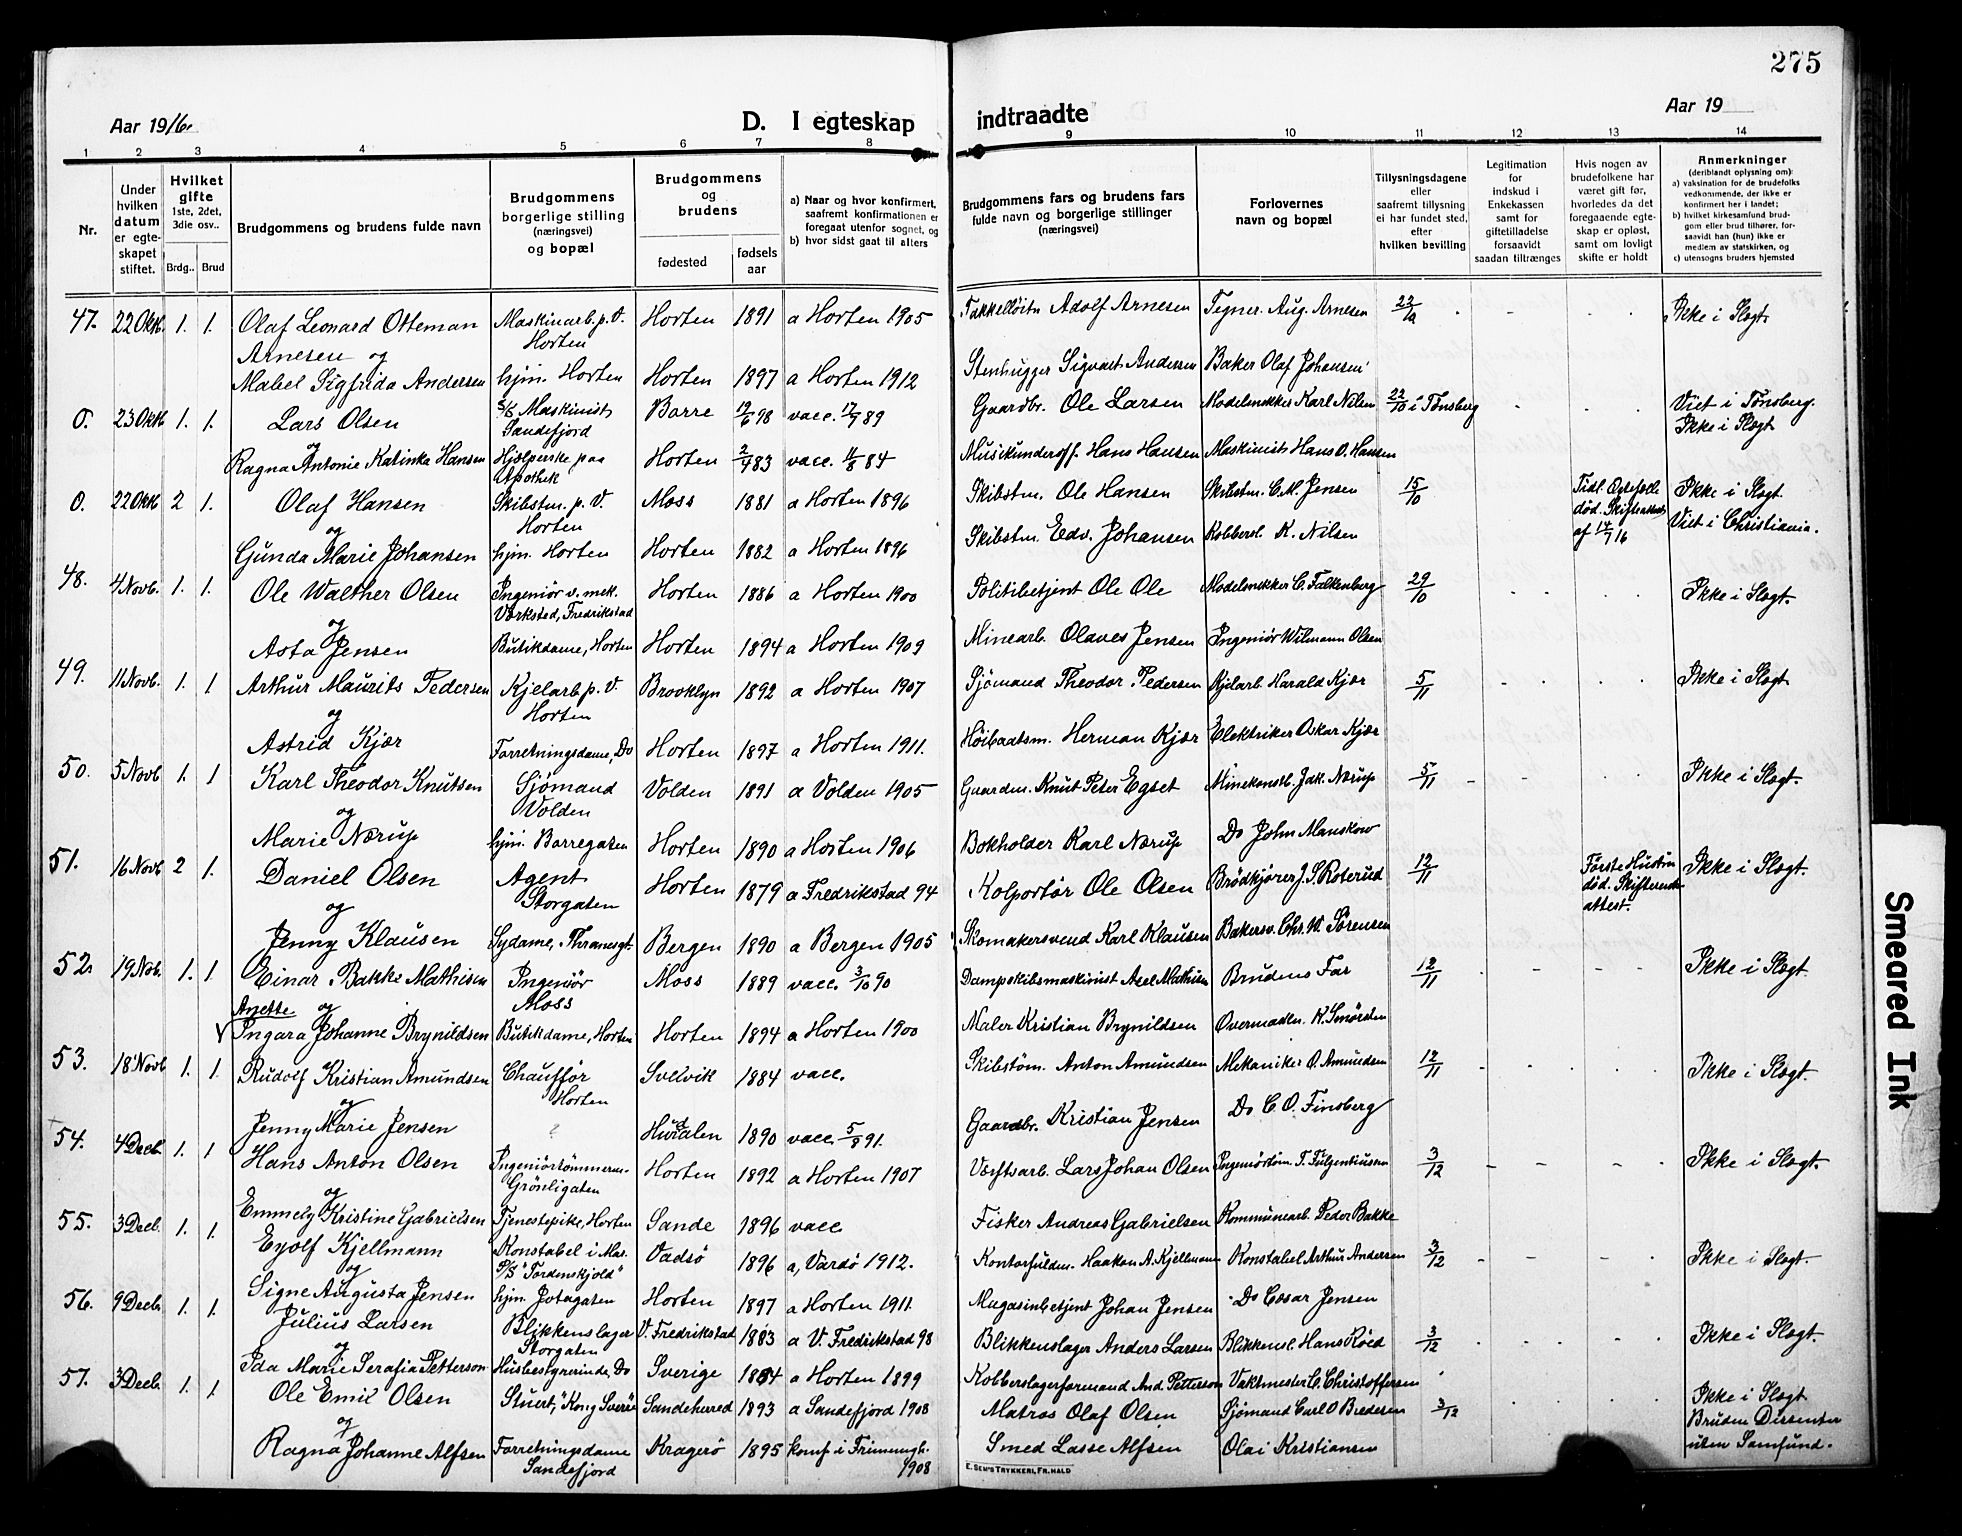 275
Aar 1916.
D. I egteskap
indtraadte
Aar 19
1 2 3 4 5 6 7 8 9 10 11 12 13 14
Nr.
Under hvilken datum er egteskapet stiftet.
Hvilket gifte 1ste, 2det, 3die osv..
Brdg.. Brud
Brudgommens og brudens fulde navn
Brudgommens borgerlige stilling (næringsvei) og bopæl
Brudgommens og brudens
fødested
fødsels aar
a) Naar og hvor konfirmert, saafremt konfirmationen er foregaat utenfor sognet, og
b) hvor sidst gaat til alters
Brudgommens fars og brudens fars fulde navn og borgerlige stillinger (næringsvei)
Forlovernes navn og bopæl
Tillysningsdagene eller saafremt tillysning ei har fundet sted, efter hvilken bevilling
Legitimation for indskud i Enkekassen samt for giftetilladelse forsaavidt saadan tiltrænges
Hvis nogen av brudefolkene har været gift før, hvorledes da det foregaaende egteskap er opløst, samt om lovligt skifte er holdt
Anmerkninger (deriblandt oplysning om):
a) vaksination for de brudefolks vedkommende, der ikke er konfirmert her i landet;
b) hvilket kirkesamfund brudgom eller brud tilhører, forsaavidt han (hun) ikke er medlem av statskirken, og
c) utensogns bruders hjemsted
47. 22 Okt. 1. 1. Olaf Leonard Otteman Maskinarb. p. V. Horten 1891 a Horten 1905 Takkelløitn Adolf Arnesen Tegner. Aug. Arnesen 22/10 Ikke i Slægt.
Arnesen og Horten
Mabel Sigfrida Andersen hjm. Horten Horten 1897 a Horten 1912 Stenhugger Sigvart Andersen Baker Olaf Johansen
0. 23 Okt 1. 1. Lars Olsen S/S Maskinist Borre 19/6 98 vacc. 17/9 89 Gaardbr. Ole Larsen Modelsnekker Karl Nilsen 22/10 i Tønsberg Viet i Tønsberg.
og Sandefjord Ikke i Slægt
Ragna Antonie Katinka Hansen Hjælperske paa Horten 2/4 83 vacc. 11/8 84 Musikunderoff. Hans Hansen Maskinist Hans O. Hansen
Apothek
0. 22 Okt 2 1. Olaf Hansen Skibstm. p. V. Moss 1881 a Horten 1896 Skibstm. Ole Hansen Skibstm. C. M. Jensen 15/10 Tidl. Egtefælle Ikke i Slægt.
og Horten død. Skifteattest Viet i Christiania.
Gunda Marie Johansen hjm. Horten Horten 1882 a Horten 1896 Skibstm. Edv. Johansen Kobbersl. K. Nilsen af 14/7 16
48. 4 Novb. 1. 1. Ole Walther Olsen Ingeniør v. mek. Horten 1886 a Horten 1900 Politibetjent Ole Ole Modelsnekker C. Falkenberg 29/10 Ikke i Slægt.
og Værksted, Fredrikstad
Asta Jensen Butikdame, Horten Horten 1894 a Horten 1909 Minearb. Olaves Jensen Ingeniør Wilmann Olsen
49. 11 Novb. 1. 1 Arthur Maurits Pedersen Kjelarb p. V. Brooklyn 1892 a Horten 1907 Sjømand Theodor Pedersen Kjelarb. Harald Kjær 5/11 Ikke i Slægt.
og Horten
Astrid Kjær Forretningsdame, Do Horten 1897 a Horten 1911. Høibaatsm. Herman Kjær Elektriker Oskar Kjær
50. 5 Novb 1. 1 Karl Theodor Knutsen Sjømand Volden 1891 a Volden 1905 Gaardm. Knut Peter Egset Minekonst. Jak. Nærup 5/11 Ikke i Slægt.
og Volden
Marie Nærup hjm. Borregaten Horten 1890 a Horten 1906 Bokholder Karl Nærup Do John Manskow
51. 16 Novb 2 1. Daniel Olsen Agent Horten 1879 a Fredrikstad 94 Kolportør Ole Olsen Brødkjører J. S. Roterud 12/11 Første Hustru Ikke i Slægt.
og Storgaten død. Skifteretts attest.
Jenny Klausen Sydame, Thranesgt. Bergen 1890 a Bergen 1905 Skomakersvend Karl Klausen Bakersv. Chr. W. Sørensen
52. 19 Nob. 1. 1 Einar Bakke Mathisen Ingeniør Moss 1889 vacc. 3/10 90 Dampskibsmaskinist Axel Mathisen Brudens Far 12/11 Ikke i Slægt.
Anette og Moss
Ingara Johanne Brynildsen Butikdame, Horten Horten 1894 a Horten 1900 Maler Kristian Brynildsen Overmadtm. K. Smørsten
53. 18 Novb 1. 1. Rudolf Kristian Amundsen Chauffør Svelvik 1884 vacc. Skibstøm. Anton Amundsen Mekaniker O. Amundsen 12/11 Ikke i Slægt.
og Horten
Jenny Marie Jensen ? Hurdalen 1890 vacc. 5/8 91. Gaardbr. Kristian Jensen Do C. O. Finsberg
54. 4 Decb. 1. 1 Hans Anton Olsen Ingeniørtømmerm. Horten 1892 a Horten 1907 Værftsarb. Lars Johan Olsen Ingeniørtøm. T. Fulgentiussen 3/12 Ikke i Slægt.
og Grønligaten
Emmely Kristine Gabrielsen Tjenestepike, Horten Sande 1896 vacc Fisker Andreas Gabrielsen Kommunearb. Peder Bakke
55. 3 Decb. 1. 1. Eyolf Kjellmann Konstabel i Mar. Vadsö 1896 a, Vardö 1912. Kontorfuldm. Haakon A. Kjellmann Konstabel Arthur Andersen 3/12 Ikke i Slægt.
og P/S "Tordenskjold"
Signe Augusta Jensen hjm. Jotagaten Horten 1897 a Horten 1911. Magasinbetjent Johan Jensen Do Cæsar Jensen
56. 9 Decb. 1. 1. Julius Larsen Blikkenslager V. Fredrikstad 1883 a V. Fredrikstad 98 Blikkenslager Anders Larsen Blikkensl. Hans Röed 3/12 Ikke i Slægt.
og Storgaten
Ida Marie Serafia Petterson Husbestyrerinde, Do Sverige 1884 a Horten 1899 Kobberslagerformand And. Petterson Vaktmester C. Christoffersen
57. 3 Decb. 1. 1. Ole Emil Olsen Stuert, "Kong Sverre" Sandeherred 1893 a Sandefjord 1908 Matros Olaf Olsen Sjømand Carl O Bredesen 3/12 Ikke i Slægt
og Bruden Dissenter
Ragna Johanne Alfsen Forretningsdame Kragerö 1895 konf i Frimenigh. Smed Lasse Alfsen Olai Kristiansen uten Samfund.
Sandefjord 1908
E. SEM'S TRYKKERI, FR.HALD
Smeared Ink